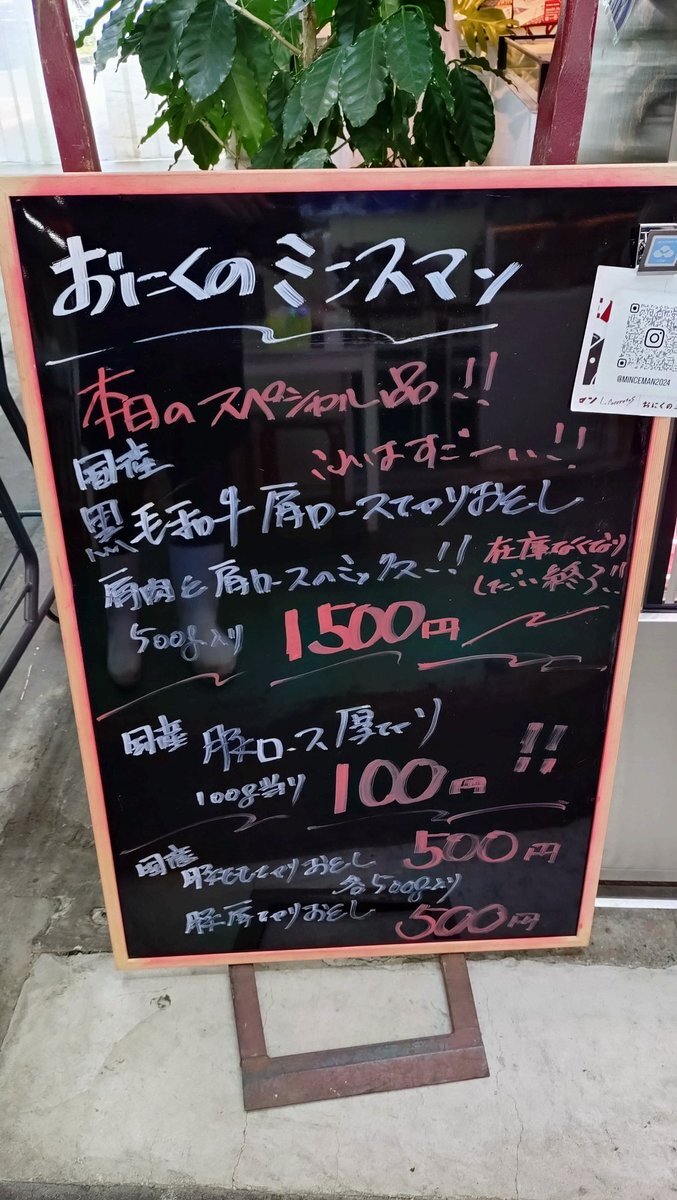 おにくのミンスマン
@MINCEMAN2024
おにくの
本日のスペシャル品!!
国産
これはすごーい!!
黒毛和牛肩ロース切りおとし
肩肉と肩ロースのミックス!!
在庫なくなり
しだい終了!!
500g入り 1500円
国産 豚ロース厚切り
100g当り 100円 !!
国産
豚もも切りおとし 500円
各500g入り
豚肩切りおとし 500円